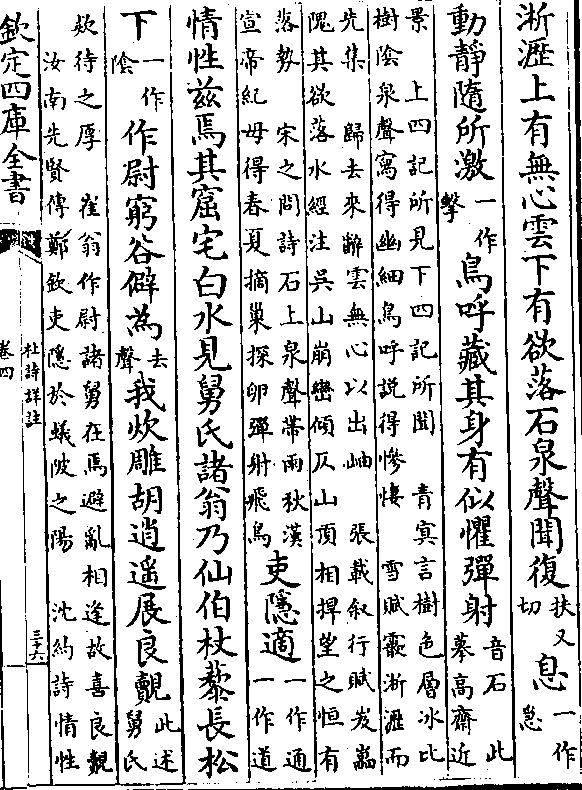 淅瀝上有無心雲下有欲落石泉聲聞復扶又切息一作急
動靜隨所激一作擊鳥呼藏其身有似懼彈射音石　此摹高齋近
景　上四記所見下四記所聞　青冥言樹色層冰比
樹陰泉聲寫得幽細鳥呼説得慘悽　雪賦霰淅瀝而
先集　歸去來辭雲無心以出岫　張載敘行賦岌嵓
隗其欲落水經注吳山崩巒傾仄山頂相捍望之恒有
落勢　宋之問詩石上泉聲帶雨秋漢
宣帝紀毋得春夏摘巢探卵彈射飛鳥
吏隱適一作通一作道
情性兹焉其窟宅白水見舅氏諸翁乃仙伯杖藜長松
下一作陰作尉窮谷僻為去聲我炊雕胡逍遥展良覿此述舅氏
欵待之厚　崔翁作尉諸舅在焉避亂相逢故喜良覿
汝南先賢傳鄭欽吏隱於蟻陂之陽　沈約詩情性
欽定四庫全書
杜詩詳註
卷四
三十六